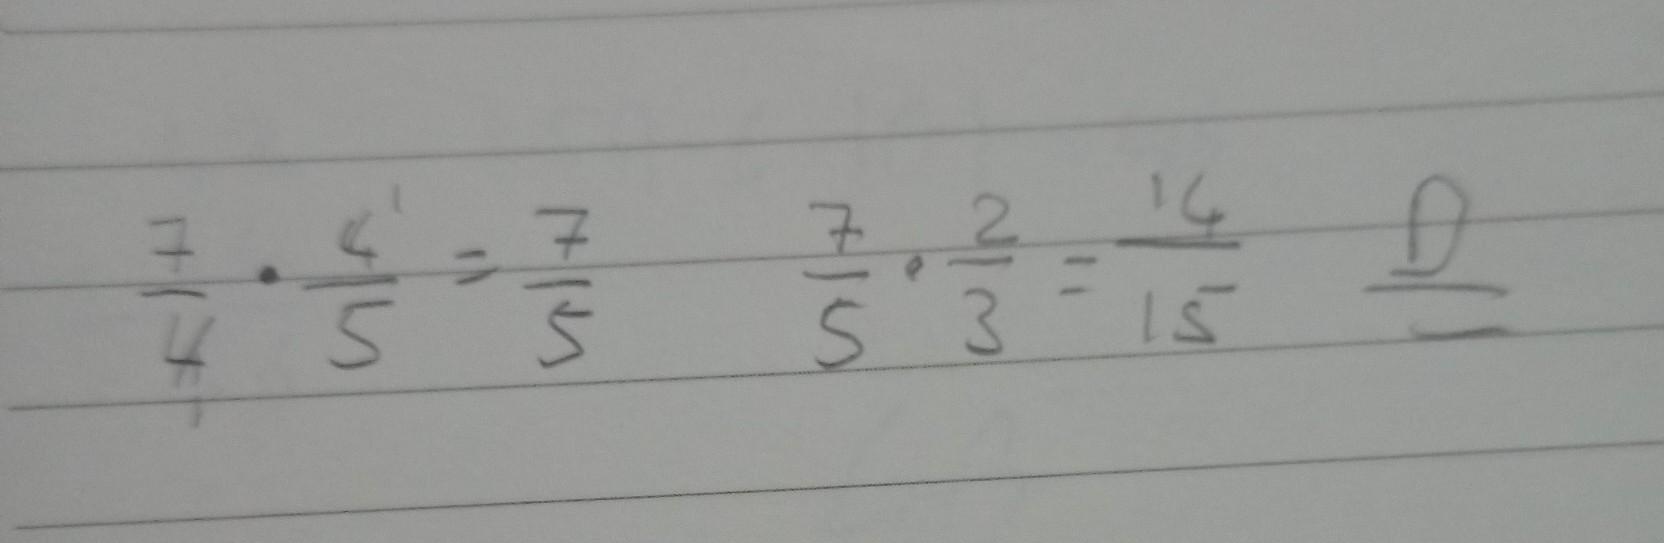 7/4 · 4/5 = 7/5   7/5 · 2/3 = 14/15   D